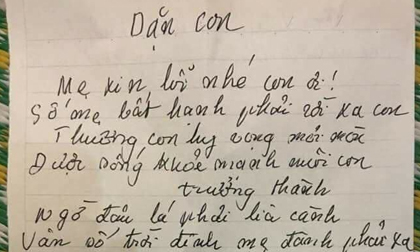 Dặn con
Mẹ xin lỗi nhé con ơi!
Số mẹ bất hạnh phải rời xa con
Thương con hy vọng mỏi mòn
Được sống khỏe mạnh nuôi con
trưởng thành
Ngờ đâu lá phải lìa cành
Vận số trời định mẹ đành phải xa